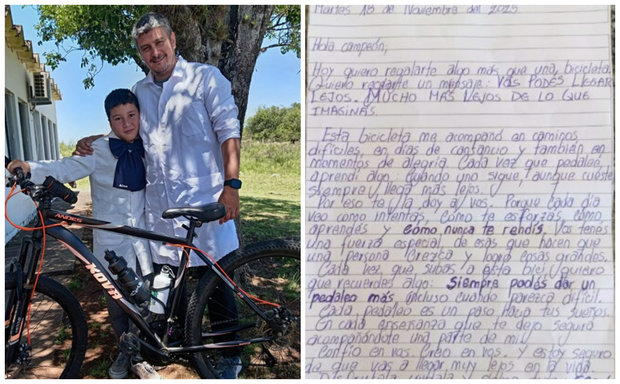 ANDES
NOVA
Martes 18 de Noviembre del 2025
Hola campeón,
Hoy quiero regalarte algo más que una bicicleta.
Quiero regalarte un mensaje: VOS PODÉS LLEGAR
LEJOS. MUCHO MÁS LEJOS DE LO QUE
IMAGINÁS.
Esta bicicleta me acompañó en caminos
difíciles, en días de cansancio y también en
momentos de alegría. Cada vez que pedaleé,
aprendí algo. Cuando uno sigue, aunque cueste
siempre llega más lejos.
Por eso te la doy a vos. Porque cada día
veo como intentás, cómo te esforzás, cómo
aprendés y cómo nunca te rendís. Vos tenés
una fuerza especial, de esas que hacen que
una persona crezca y logre cosas grandes.
Cada vez que subas a esta bici, quiero
que recuerdes algo: Siempre podés dar un
pedaleo más, incluso cuando parezca difícil.
Cada pedaleo es un paso hacia tus sueños.
En cada enseñanza que te dejo seguirá
acompañándote una parte de mí.
Confío en vos. Creo en vos. Y estoy seguro
de que vas a llegar muy lejos en la vida.